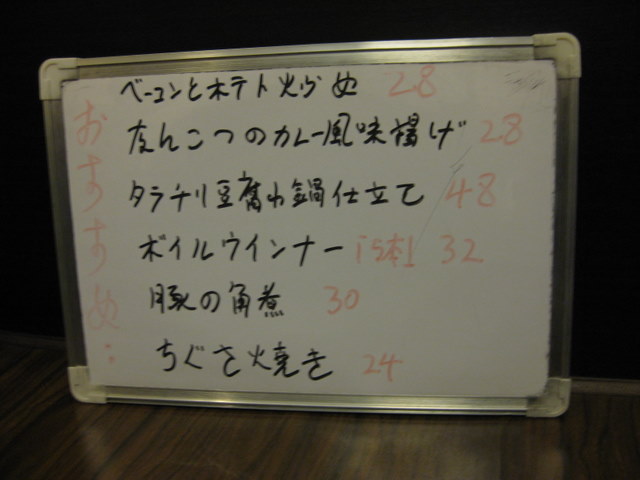 おすすめ:
ベーコンとポテト炒め 28
なんこつのカレー風味揚げ 28
タラチリ豆腐小鍋仕立て 48
ボイルウインナー 32
豚の角煮 30
ちぐさ焼き 24